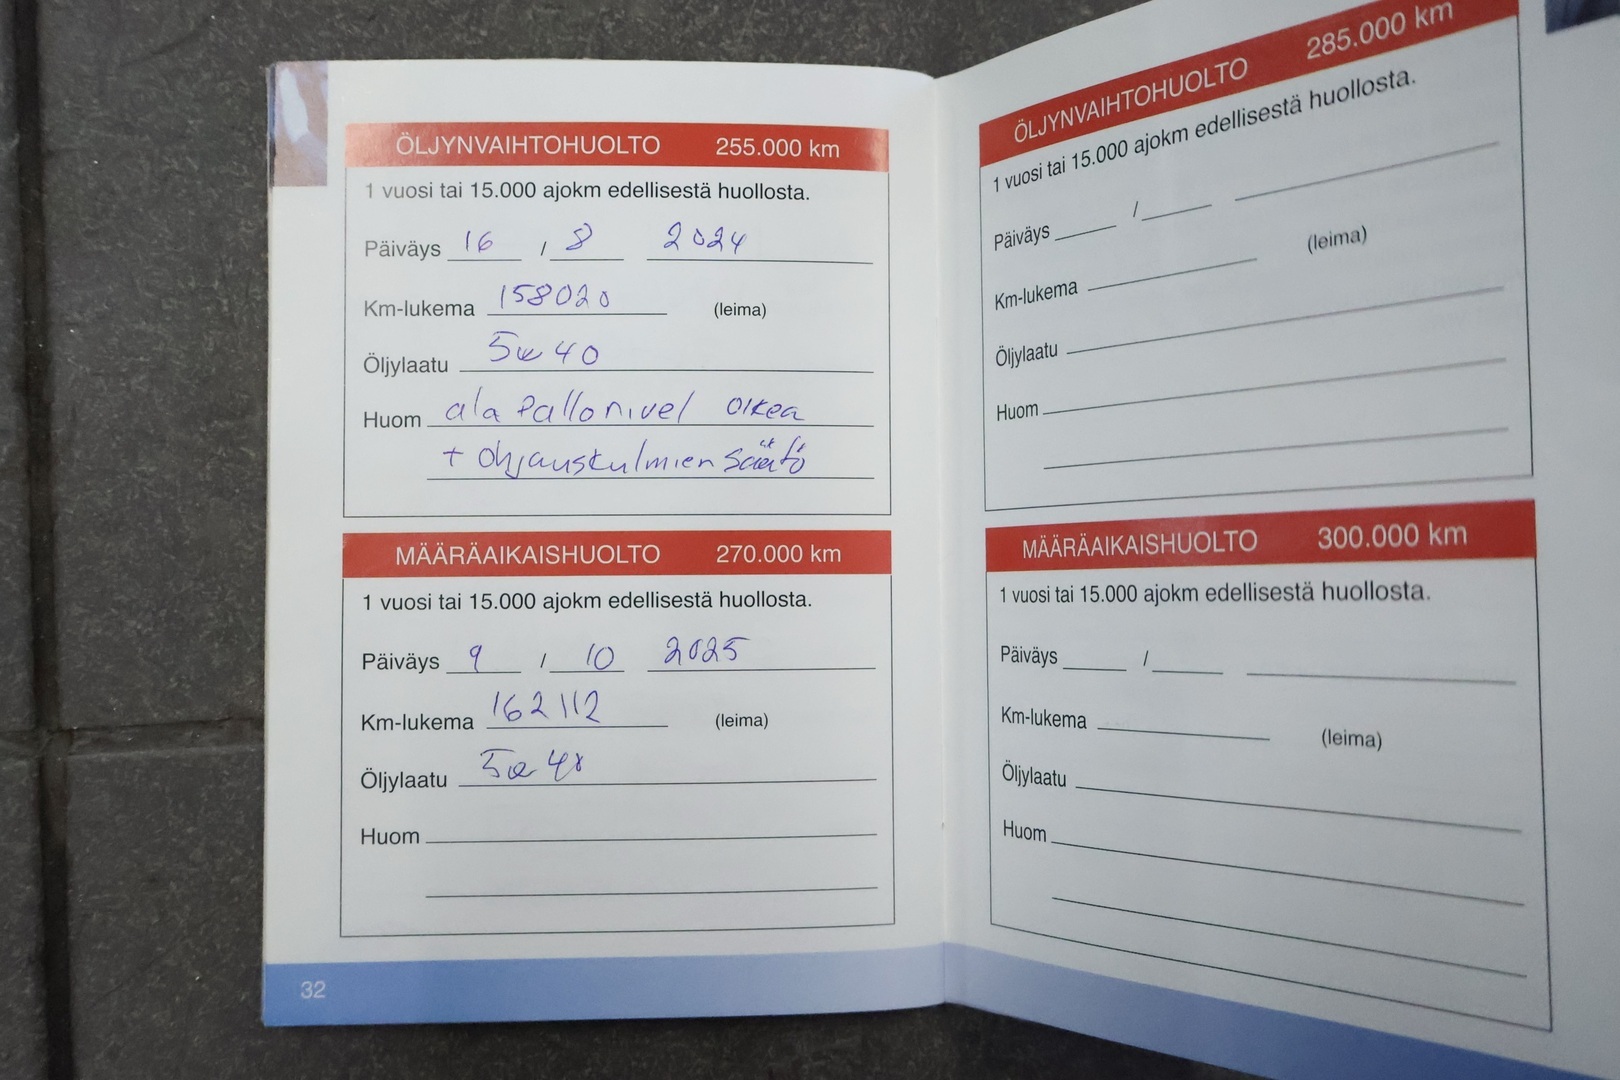 ÖLJYNVAIHTOHUOLTO 255.000 km
1 vuosi tai 15.000 ajokm edellisestä huollosta.
Päiväys 16 / 8 2024
Km-lukema 158020 (leima)
Öljylaatu 5w40
Huom ala Pallonivel oikea
+ Ohjauskulmien säätö
MÄÄRÄAIKAISHUOLTO 270.000 km
1 vuosi tai 15.000 ajokm edellisestä huollosta.
Päiväys 9 / 10 2025
Km-lukema 162112 (leima)
Öljylaatu 5w40
Huom
32
ÖLJYNVAIHTOHUOLTO 285.000 km
1 vuosi tai 15.000 ajokm edellisestä huollosta.
Päiväys /
Km-lukema (leima)
Öljylaatu
Huom
MÄÄRÄAIKAISHUOLTO 300.000 km
1 vuosi tai 15.000 ajokm edellisestä huollosta.
Päiväys /
Km-lukema (leima)
Öljylaatu
Huom